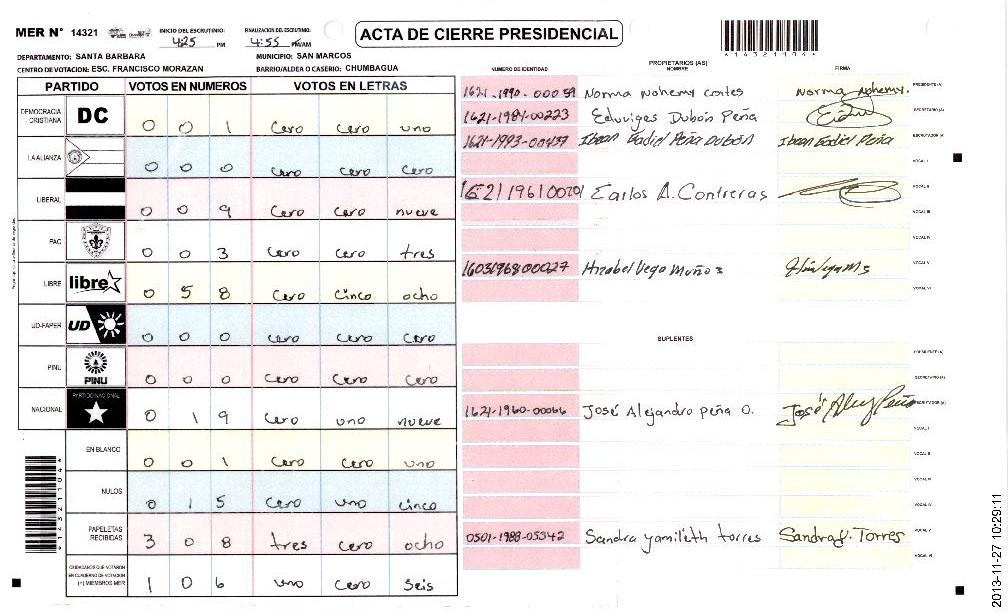 MER N° 14321
INICIO DEL ESCRUTINIO: 4:25 PM
FINALIZACION DEL ESCRUTINIO: 4:55 PM/AM
ACTA DE CIERRE PRESIDENCIAL
14321104
DEPARTAMENTO: SANTA BARBARA
MUNICIPIO: SAN MARCOS
CENTRO DE VOTACION: ESC. FRANCISCO MORAZAN
BARRIO/ALDEA O CASERIO: CHUMBAGUA
PARTIDO VOTOS EN NUMEROS VOTOS EN LETRAS
DEMOCRACIA CRISTIANA DC 0 0 1 cero cero uno
LA ALIANZA 0 0 0 cero cero cero
LIBERAL 0 0 9 cero cero nueve
PAC 0 0 3 cero cero tres
LIBRE libre 0 5 8 cero cinco ocho
UD-FAPER UD 0 0 0 cero cero cero
PINU PINU 0 0 0 cero cero cero
NACIONAL PARTIDO NACIONAL 0 1 9 cero uno nueve
EN BLANCO 0 0 1 cero cero uno
NULOS 0 1 5 cero uno cinco
PAPELETAS RECIBIDAS 3 0 8 tres cero ocho
CIUDADANOS QUE VOTARON EN CUADERNO DE VOTACION (+) MIEMBROS MER 1 0 6 uno cero seis
PROPIETARIOS (AS)
NUMERO DE IDENTIDAD NOMBRE FIRMA
1621-1990-00059 Norma Nohemy cortes Norma Nohemy. PRESIDENTE (A)
1621-1984-00223 Eduviges Dubón Peña SECRETARIO (A)
1621-1993-00457 Gadiel Peña Dubón Gadiel Peña ESCRUTADOR (A)
VOCAL I
1621 1961 00201 Carlos A. Contreras VOCAL II
VOCAL III
VOCAL IV
1603196800027 Vega Muñoz VOCAL V
VOCAL VI
SUPLENTES
PRESIDENTE (A)
SECRETARIO (A)
1621-1960-00066 José Alejandro peña O. José Peña ESCRUTADOR (A)
VOCAL I
VOCAL II
VOCAL III
VOCAL IV
0501-1988-05342 Sandra yamileth torres Sandra Y. Torres VOCAL V
VOCAL VI
2013-11-27 10:29:11